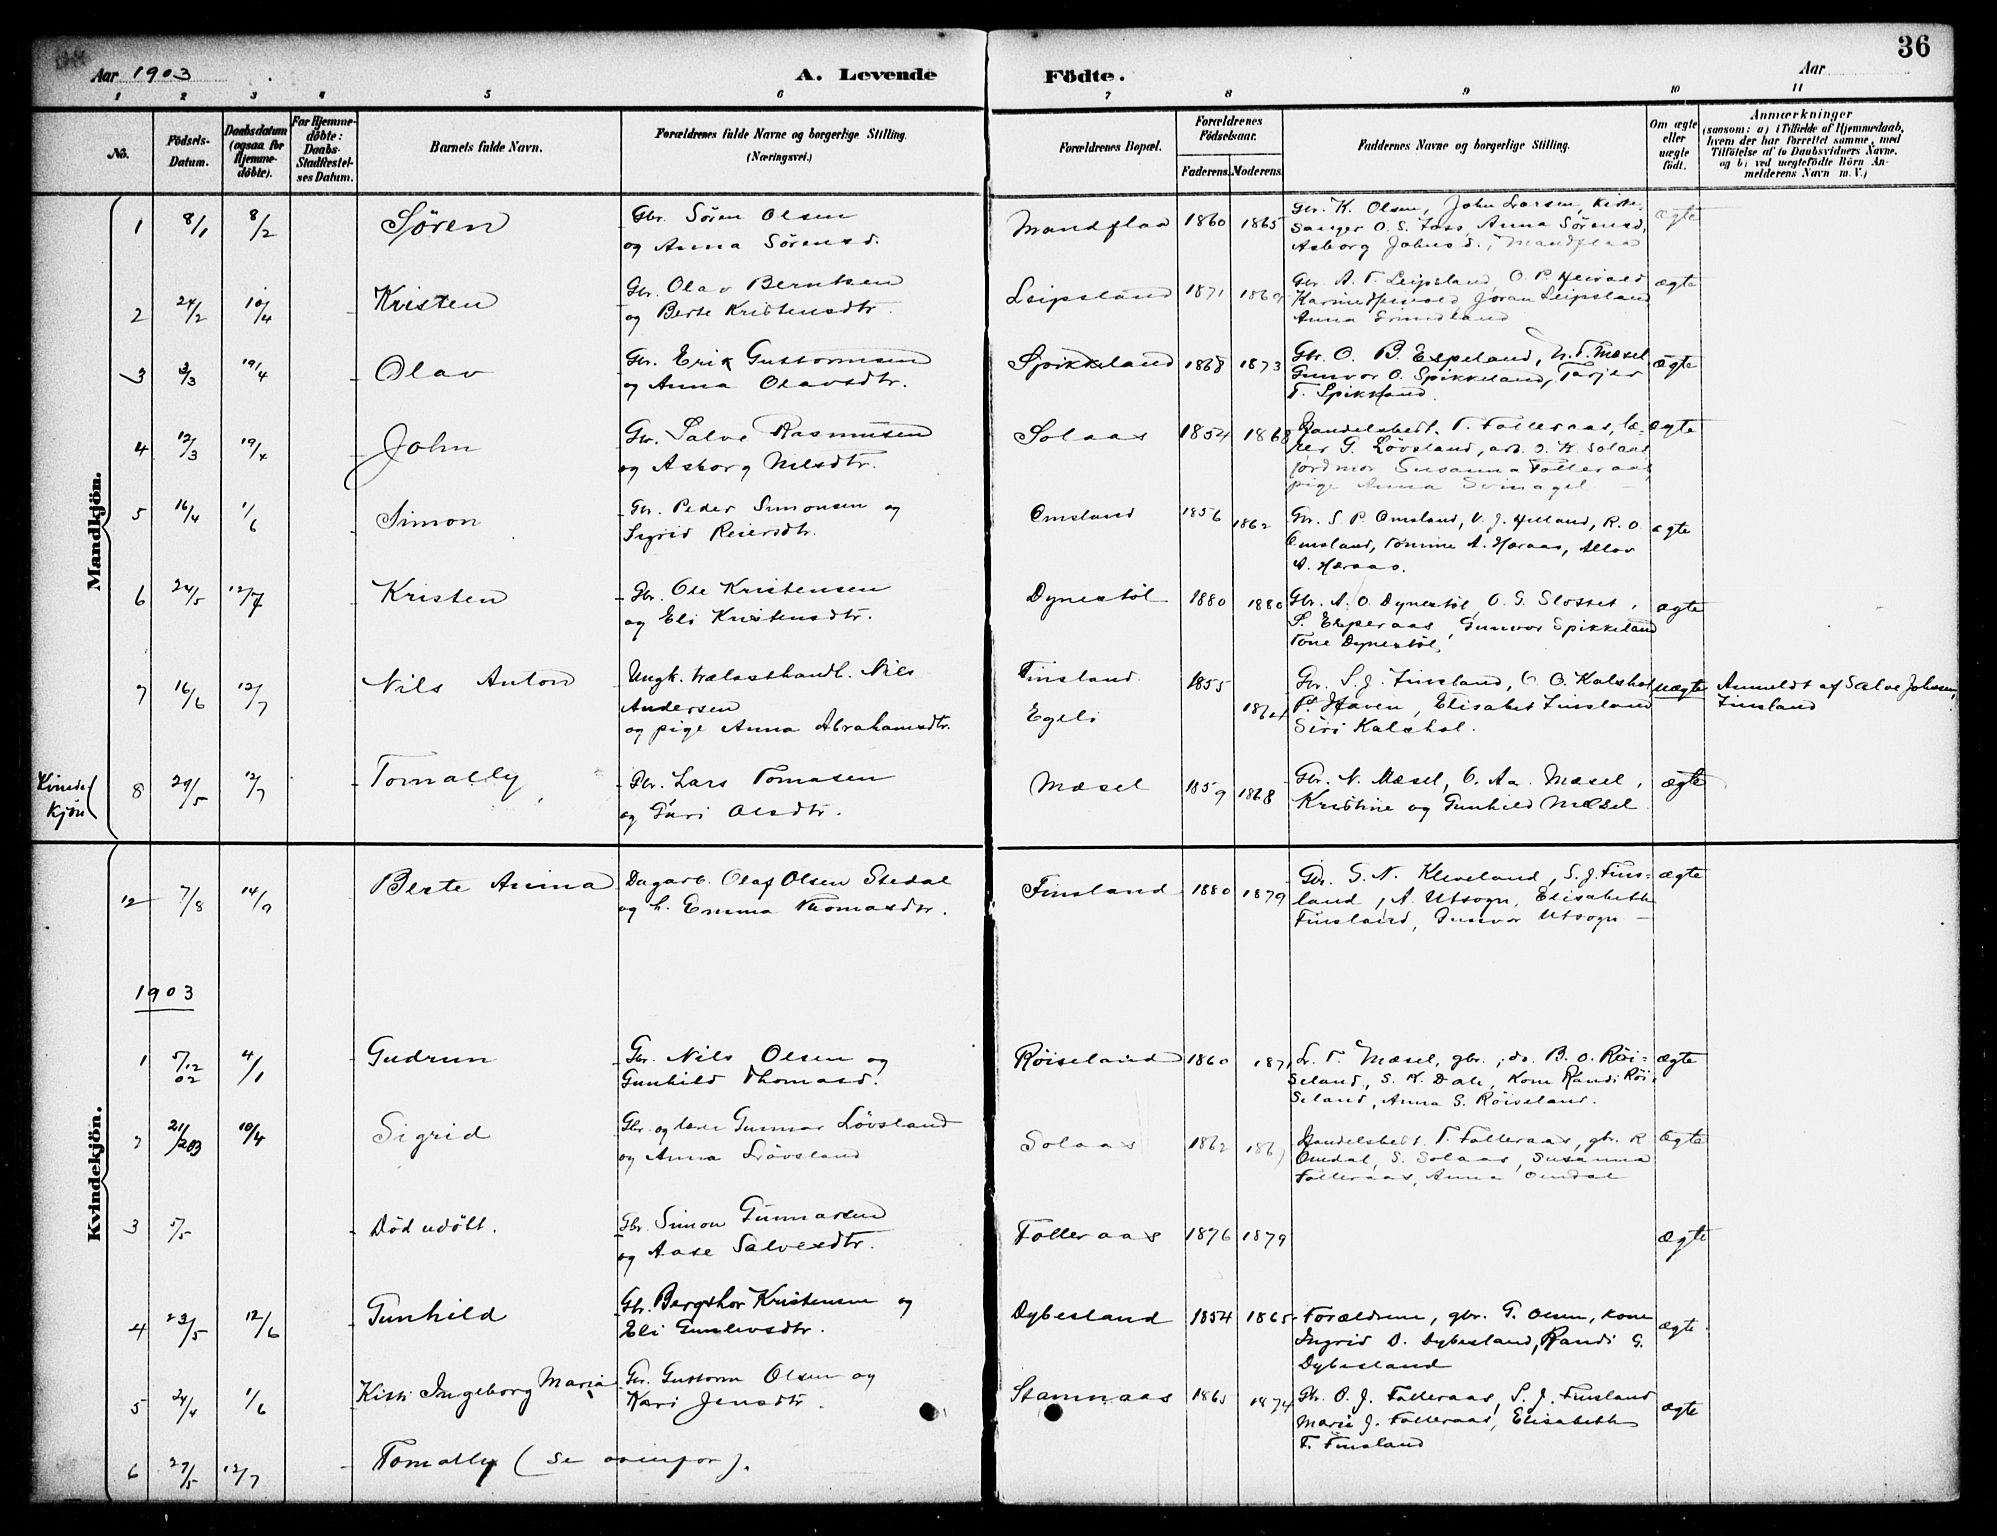 Aar 1903
A. Levende
Födte.
Aar
36
1 2 3 4 5 6 7 8 9 10 11
No.
Födsels-
Datum.
Daabsdatum
(ogsaa for
Hjemme-
döbte).
For Hjemme-
döbte:
Daabs-
Stadfæstel-
ses Datum.
Barnets fulde Navn.
Forældrenes fulde Navne og borgerlige Stilling.
(Næringsvei.)
Forældrenes Bopæl.
Forældrenes
Födselsaar.
Faderens. Moderens.
Faddernes Navne og borgerlige Stilling.
Om ægte
eller
uægte
födt.
Anmærkninger
(saasom: a) i Tilfælde af Hjemmedaab,
hvem der har forrettet samme, med
Tilföielse af to Daabsvidners Navne,
og b) ved uægtefödte Börn An-
melderens Navn m. V.)
Mandkjön.
1 8/1 8/2 Søren
Gbr. Søren Olsen
og Anna Sørensd.
Mandflaa 1860 1865
Gbr. K. Olsen, John Larsen, Kirke-
sanger O. S. Foss, Anna Sørensd,
Asborg Johnsd., Mandflaa
ægte
2 24/2 10/4 Kristen
Gbr. Olav Berntsen
og Berte Kristensdtr.
Leipsland 1871 1869
Gbr. A. T. Leipsland, O. P. Heivold
Karine Heivold Joran Leipsland
Anna
ægte
3 3/3 19/4 Olav
Gbr. Erik Guttormsen
og Anna Olavsdtr.
Spikkeland 1868 1873
Gbr. O. B. Espeland, N. T. Mæsel
Gunvor O. Spikkeland, Tarjer
T. Spikkland
ægte
4 12/3 19/4 John
Gbr. Salve Rasmusen
og Asborg Nilsdtr.
Solaas 1854 1868
Handelsbedt. T. Folleraas, læ-
rer G. Løvsland, arb. O. K. Solaas
jordmor Susanna Folleraas,
pige Anna Svinagel
ægte
5 16/4 1/6 Simon
Gbr. Peder Simonsen og
Sigrid Reiersdtr.
Omsland 1856 1862
Gbr. S. P. Omsland, V. J. Helland, R. O
Omsland, Tomine A. Haraas,
A. Høraas.
ægte
6 24/5 12/7 Kristen
Gbr. Ole Kristensen
og Eli Kristensdtr.
Dynestøl 1880 1880
Gbr. A. O. Dynestøl, O. G. Slottet,
S. Esperaas, Gunvor Spikkeland
Tone Dynestøl,
ægte
7 16/6 12/7 Nils Anton
Ungk. trælasthandl. Nils
Andersen
og pige Anna Abrahamsdtr.
Finsland
Egeli
1855
Gbr. S. J. Finsland, O. O. Kalshol,
P. Haven, Elisabet Finsland
Siri Kalshol.
uægte
Anmeldt af Salve Johnsen,
Finsland
Kvinde
kjön
8 29/5 12/7 Tomally
Gbr. Lars Tomasen
og Guri Olsdtr.
Mæsel 1859 1868
Gbr. N. Mæsel, O. Aa. Mæsel,
Kristine og Gunhild Mæsel.
ægte
Kvindekjön.
12 7/8 14/9 Berte Anina
Dagarb. Olaf Olsen Stedal
og h. Emma Thomasdtr.
Finsland 1880 1879
Gbr. S. N. Kleveland, S. J. Fins-
land, A. Utsogn, Elisabeth
Finsland, Gunvor Utsogn
ægte
1903
1 5/12 02 4/1 Gudrun
Gbr. Nils Olsen og
Gunhild Thomasd.
Røiseland 1860 1871
L. T. Mæsel, gbr., do. B. O. Røi-
seland, S. K. Dale, Kone Randi Røi-
seland, Anna S. Røiseland.
ægte
2 21/2 03 10/4 Sigrid
Gbr. og lærer Gunnar Løvsland
og Anna Løvsland
Solaas 1862
Handelsbedt. T. Folleraas, gbr. R
Omdal, S. Solaas, Susanna
Folleraas, Anna Omdal
ægte
3 5/5 Død udöbt.
Gbr. Simon Gunnarsen
og Aase Salvesdtr.
Folleraas 1876 1879
ægte
4 23/5 12/6 Gunhild
Gbr. Bergthor Kristensen og
Eli Gunlevsdtr.
Dybesland 1854 1865
Forældrene, gbr. G. Olsen, kone
Ingrid D. Dybesland, Randi G.
Dybesland
ægte
5 24/4 1/6 Kisti Ingeborg Maria
Gbr. Guttorm Olsen og
Kari Jensdtr.
Stamnaas 1865 1874
Gbr. O. J. Folleraas, S. J. Finsland
Marie J. Folleraas, Elisabeth
F. Finsland
ægte
6 29/5 12/7 Tomally (se ovenfor).